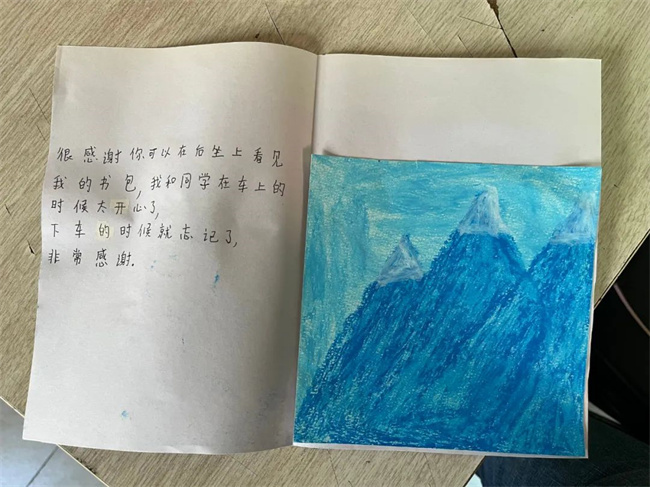 很感谢你可以在后生上看见
我的书包,我和同学在车上的
时候太开心了,
下车的时候就忘记了,
非常感谢.